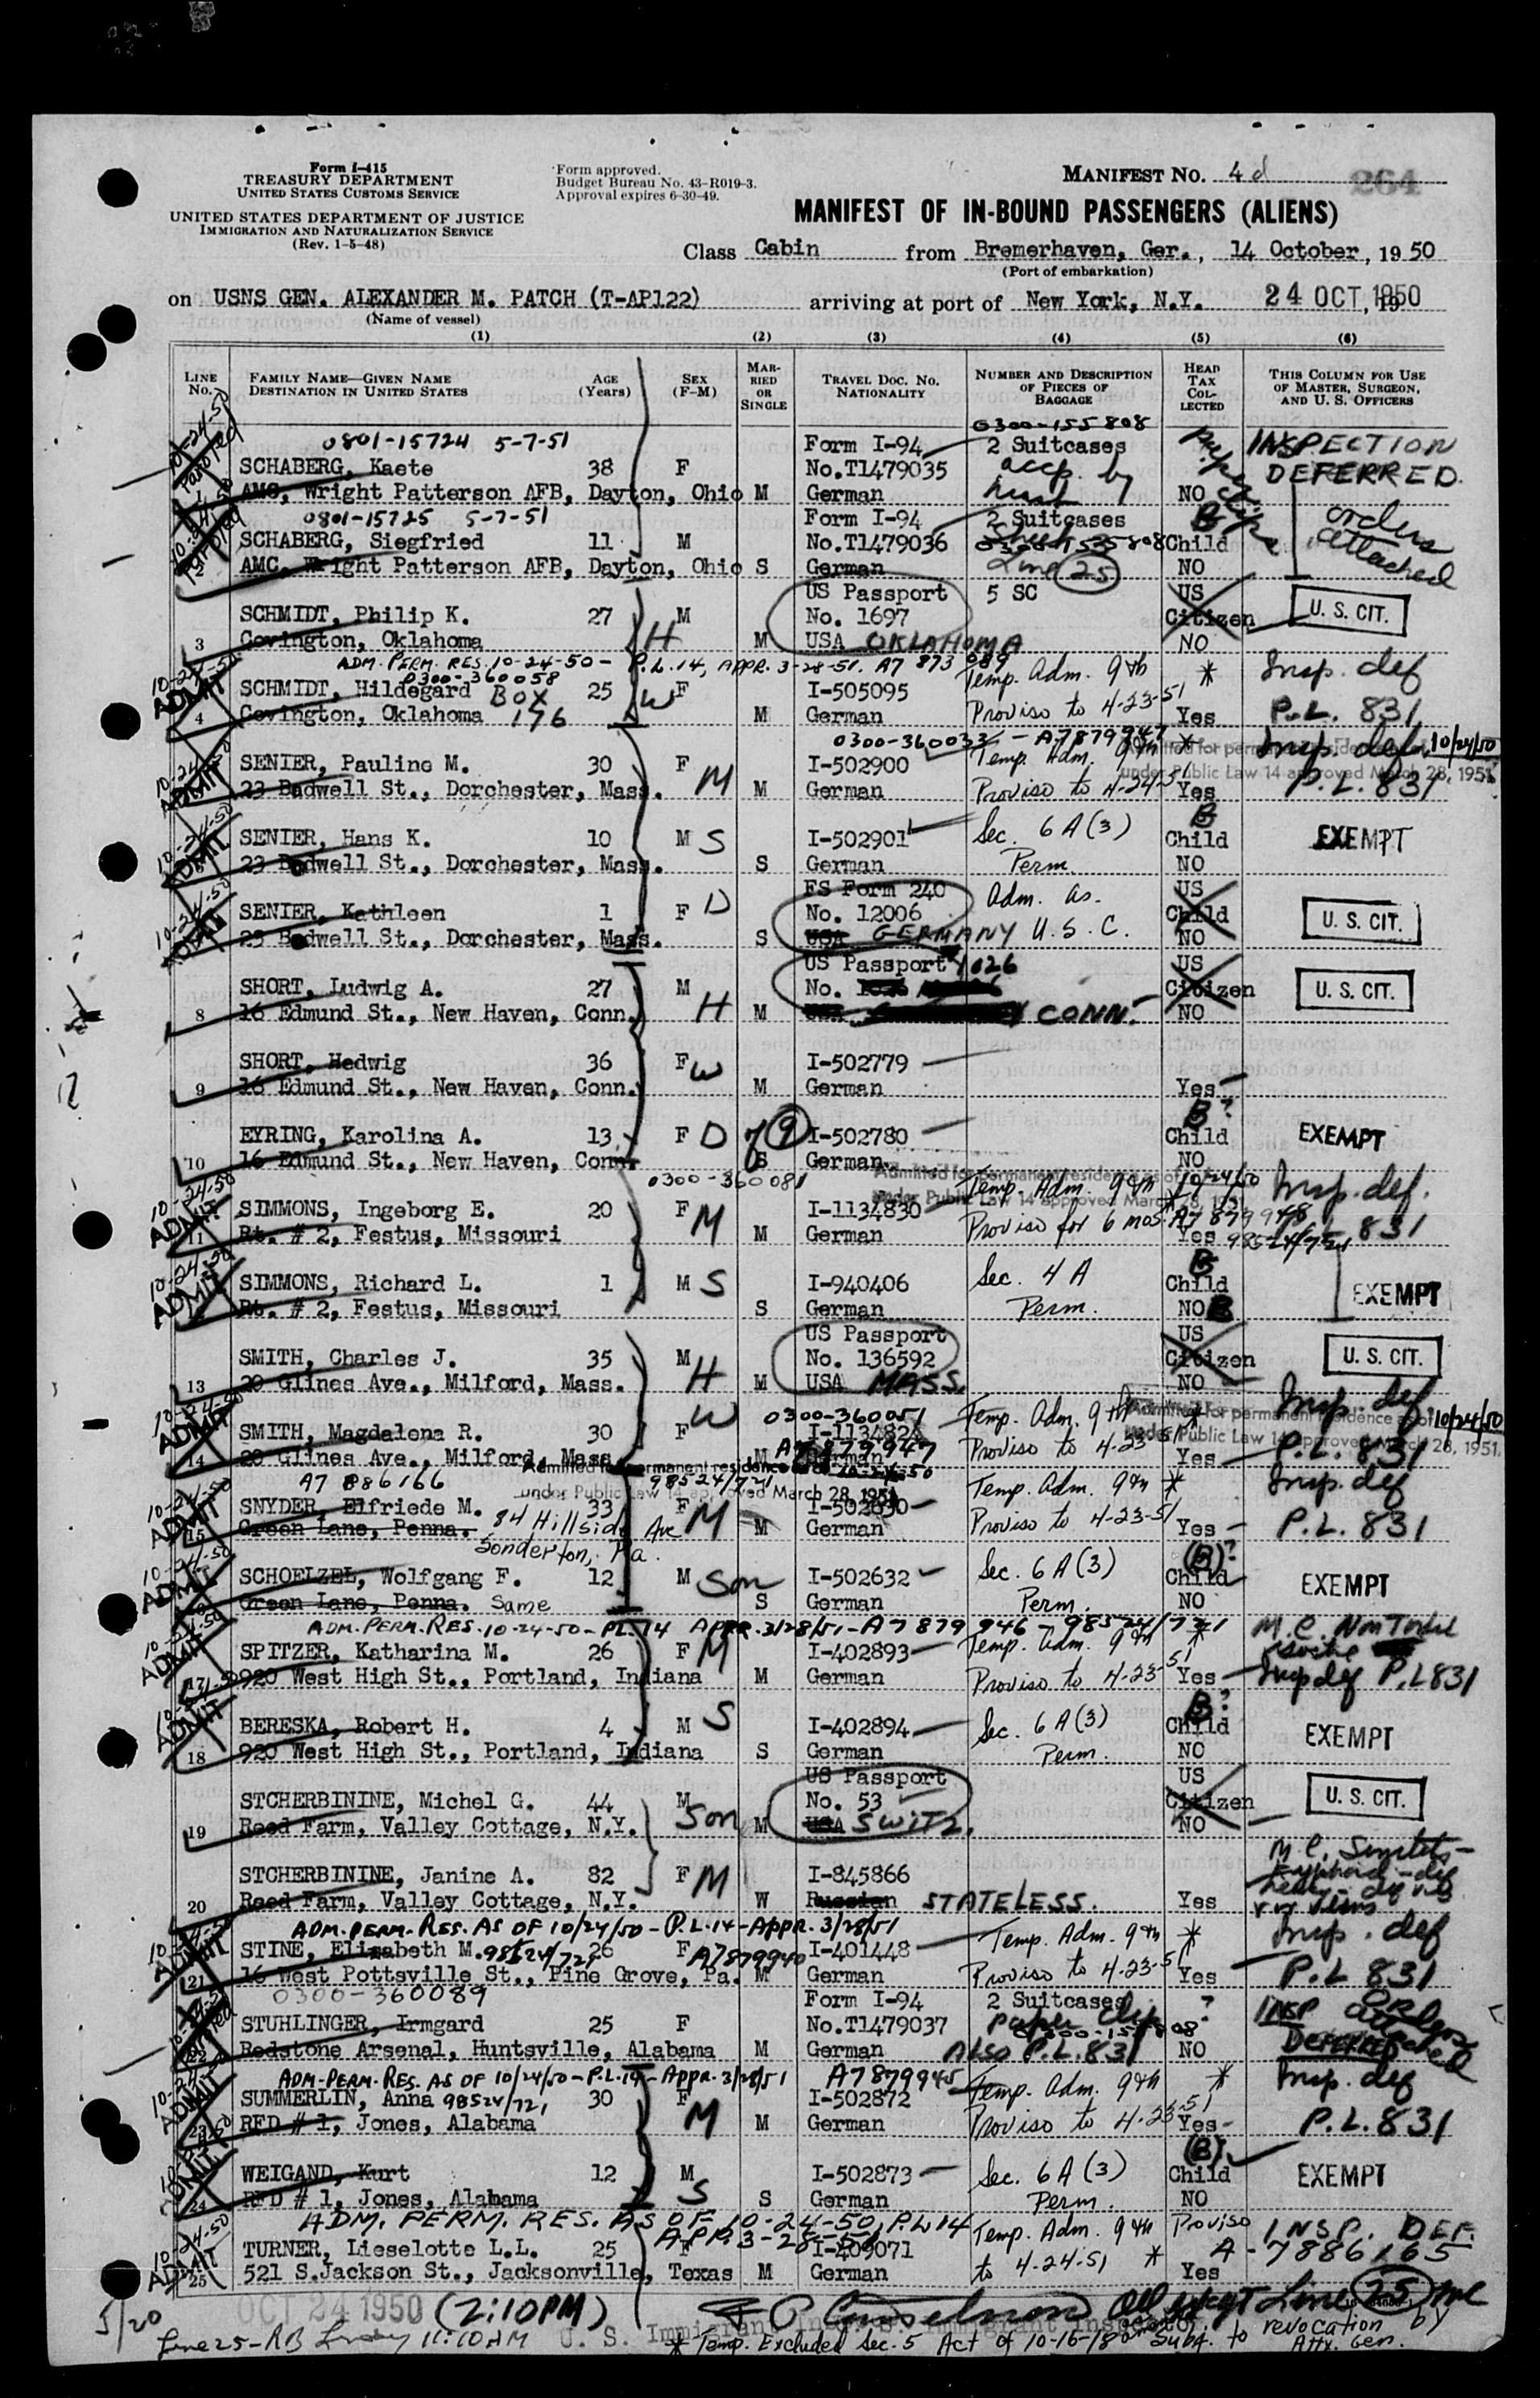 Form I-415
TREASURY DEPARTMENT
UNITED STATES CUSTOMS SERVICE
UNITED STATES DEPARTMENT OF JUSTICE
IMMIGRATION AND NATURALIZATION SERVICE
(Rev. 1-5-48)
Form approved.
Budget Bureau No. 43-R019-3.
Approval expires 6-30-49.
MANIFEST NO. 4d 264
MANIFEST OF IN-BOUND PASSENGERS (ALIENS)
Class Cabin from Bremerhaven, Ger., 14 October, 19 50
(Port of embarkation)
on USNS GEN. ALEXANDER M. PATCH (T-AP122) arriving at port of New York, N.Y. 24 OCT 1950, 19
(Name of vessel)
(1) (2) (3) (4) (5) (6)
LINE No. FAMILY NAME—GIVEN NAME DESTINATION IN UNITED STATES AGE (Years) SEX (F-M) MARRIED OR SINGLE TRAVEL DOC. NO. NATIONALITY NUMBER AND DESCRIPTION OF PIECES OF BAGGAGE HEAD TAX COLLECTED THIS COLUMN FOR USE OF MASTER, SURGEON, AND U. S. OFFICERS
0300-155808
0801-15724 5-7-51 Form I-94 2 Suitcases INSPECTION
SCHABERG, Kaete 38 F No.T1479035 accp. by DEFERRED.
AMC, Wright Patterson AFB, Dayton, Ohio M German husb NO
0801-15725 5-7-51 Form I-94 2 Suitcases orders
SCHABERG, Siegfried 11 M No.T1479036 Child attached
2 AMC, Wright Patterson AFB, Dayton, Ohio S German Line 25 NO
US Passport 5 SC US
SCHMIDT, Philip K. 27 M No. 1697 Citizen U. S. CIT.
3 Covington, Oklahoma H M USA OKLAHOMA NO
ADM. PERM. RES. 10-24-50 - P.L. 14, APPR. 3-28-51. A7 873 089
0300-360058
10-24-50 ADMIT SCHMIDT, Hildegard BOX 25 W F I-505095 Temp. Adm. 9th * Insp. def
4 Covington, Oklahoma 176 M German Proviso to 4-23-51 Yes P.L. 831
0300-360033 - A7879947 * Insp. def. 10/24/50
SENIER, Pauline M. 30 F M I-502900 Temp. Adm. 9th
23 Badwell St., Dorchester, Mass. M German Proviso to 4-24-5 Yes P.L. 831
SENIER, Hans K. 10 M S I-502901 Sec. 6 A (3) Child EXEMPT
23 Badwell St., Dorchester, Mass. S German Perm. NO
FS Form 240 Adm. as. US
SENIER, Kathleen 1 F D No. 12006 Child U. S. CIT.
23 Badwell St., Dorchester, Mass. S USA GERMANY U.S.C. NO
US Passport 1026 US
SHORT, Ludwig A. 27 M No. Citizen U. S. CIT.
8 16 Edmund St., New Haven, Conn. H M CONN. NO
SHORT, Hedwig 36 F W I-502779
9 16 Edmund St., New Haven, Conn. M German Yes
B?
EYRING, Karolina A. 13 F D of 9 I-502780 Child EXEMPT
10 16 Edmund St., New Haven, Conn. S German NO
0300-360081 Admitted for permanent residence as of 10/24/50
under Public Law 14 approved March 28, 1951
SIMMONS, Ingeborg E. 20 F M I-1134830 Temp. Adm. 9th Insp. def.
11 Rt. # 2, Festus, Missouri M German Proviso for 6 mos. A7 879 948 Yes 98524/721 831
SIMMONS, Richard L. 1 M S I-940406 Sec. 4 A Child EXEMPT
Rt. # 2, Festus, Missouri S German Perm. NO
US Passport US
SMITH, Charles J. 35 M No. 136592 Citizen U. S. CIT.
13 20 Glines Ave., Milford, Mass. H M USA MASS. NO
0300-360051 Insp. def. 10/24/50
SMITH, Magdalena R. 30 F W I-113482 Temp. Adm. 9th *
14 20 Glines Ave., Milford, Mass. M A7879947 German Proviso to 4-23-51 Yes P.L. 831
Admitted for permanent residence 10-24-50
under Public Law 14 approved March 28, 1951
A7 886166 98524/721
SNYDER, Elfriede M. 33 F M I-502630 Temp. Adm. 9th * Insp. def
15 Green Lane, Penna. 84 Hillside Ave M German Proviso to 4-23-51 Yes P.L. 831
Sonderton, Pa.
SCHOELZEL, Wolfgang F. 12 M Son I-502632 Sec. 6 A (3) (B)? Child EXEMPT
Green Lane, Penna. Same S German Perm. NO
ADM. PERM. RES. 10-24-50 - PL. 14 APPR. 3/28/51 - A7 879 946 - 98524/721
SPITZER, Katharina M. 26 F M I-402893 Temp. Adm. 9th *
17 920 West High St., Portland, Indiana M German Proviso to 4-23-51 Yes Insp def P.L 831
B?
BERESKA, Robert H. 4 M S I-402894 Sec. 6 A (3) Child EXEMPT
18 920 West High St., Portland, Indiana S German Perm. NO
US Passport US
STCHERBININE, Michel G. 44 M No. 53 Citizen U. S. CIT.
19 Reed Farm, Valley Cottage, N.Y. Son M USA SWITZ. NO
STCHERBININE, Janine A. 82 F M I-845866
20 Reed Farm, Valley Cottage, N.Y. W Russian STATELESS. Yes
ADM. PERM. RES. AS OF 10/24/50 - P.L. 14 - APPR. 3/28/51
STINE, Elizabeth M. 98524/721 26 F A7879940 I-401448 Temp. Adm. 9th * Insp. def
21 16 West Pottsville St., Pine Grove, Pa. M German Proviso to 4-23-51 Yes P.L 831
0300-360089 Form I-94 2 Suitcases ? INSP
STUHLINGER, Irmgard 25 F No.T1479037 paper clip DEFERRED
22 Redstone Arsenal, Huntsville, Alabama M German ALSO P.L. 831 NO
ADM. PERM. RES. AS OF 10/24/50 - P.L. 14 - APPR. 3/28/51 A7879945
SUMMERLIN, Anna 98524/721 30 F I-502872 Temp. Adm. 9th * Insp. def
23 RFD # 1, Jones, Alabama M M German Proviso to 4-23-51 Yes P.L. 831
(B)
WEIGAND, Kurt 12 M I-502873 Sec. 6 A (3) Child EXEMPT
24 RFD # 1, Jones, Alabama S S German Perm. NO
ADM. PERM. RES. AS OF 10-24-50, P.L. 14
TURNER, Lieselotte L.L. 25 F I-409071 Temp. Adm. 9th Proviso INSP. DEF.
A-7886165
25 521 S.Jackson St., Jacksonville, Texas M German to 4-24-51 * Yes
OCT 24 1950 (2:10PM) All except Line 25
5/20 Line 25 - 11:10 AM U. S. Immigrant Inspector
* Temp. Excluded Sec. 5 Act of 10-16-18 Subj. to revocation by Atty. Gen.